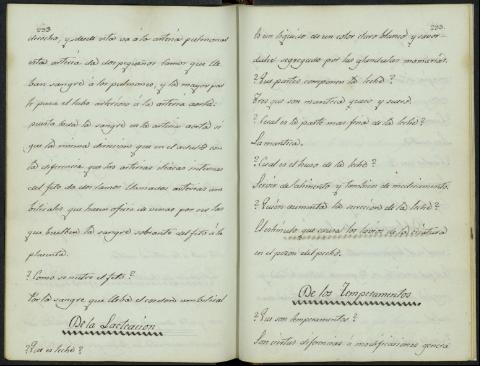 253
derecho, y desde esta va á la arteria pulmonar
esta arteria da dos pequeños ramos que lle
ban sangre á los pulmones, y la mayor par
te pasa el tubo arterioso á la arteria aorta:
puesta toda la sangre en la arteria aorta si
gue la misma direccion que en el adulto con
la diferencia que las arterias iliacas internas
del feto da dos ramos llamados arterias um
bilicales que hacen oficio de venas por ser las
que buelben la sangre sobrante del feto á la
placenta.
? Como se nutre el feto?
Por la sangre que lleba el cordon umbilical
De la Lactacion
? Que es leche?
253.
Es un liquido de un color claro blanco y sabor
dulce segregado por las glandulas mamarias.
? Que partes componen la leche?
Tres que son manteca queso y suero.
? Cual es la parte mas fina de la leche?
La manteca.
? Cual es el huso de la leche?
Servir de alimento y tambien de medicamento.
? Quien aumenta la secrecion de la leche?
El estimulo que causa los labios de la criatura
en el pezon del pecho.
De los Temperamentos
? Que son temperamentos?
Son ciertas diferencias ó modificaciones genera